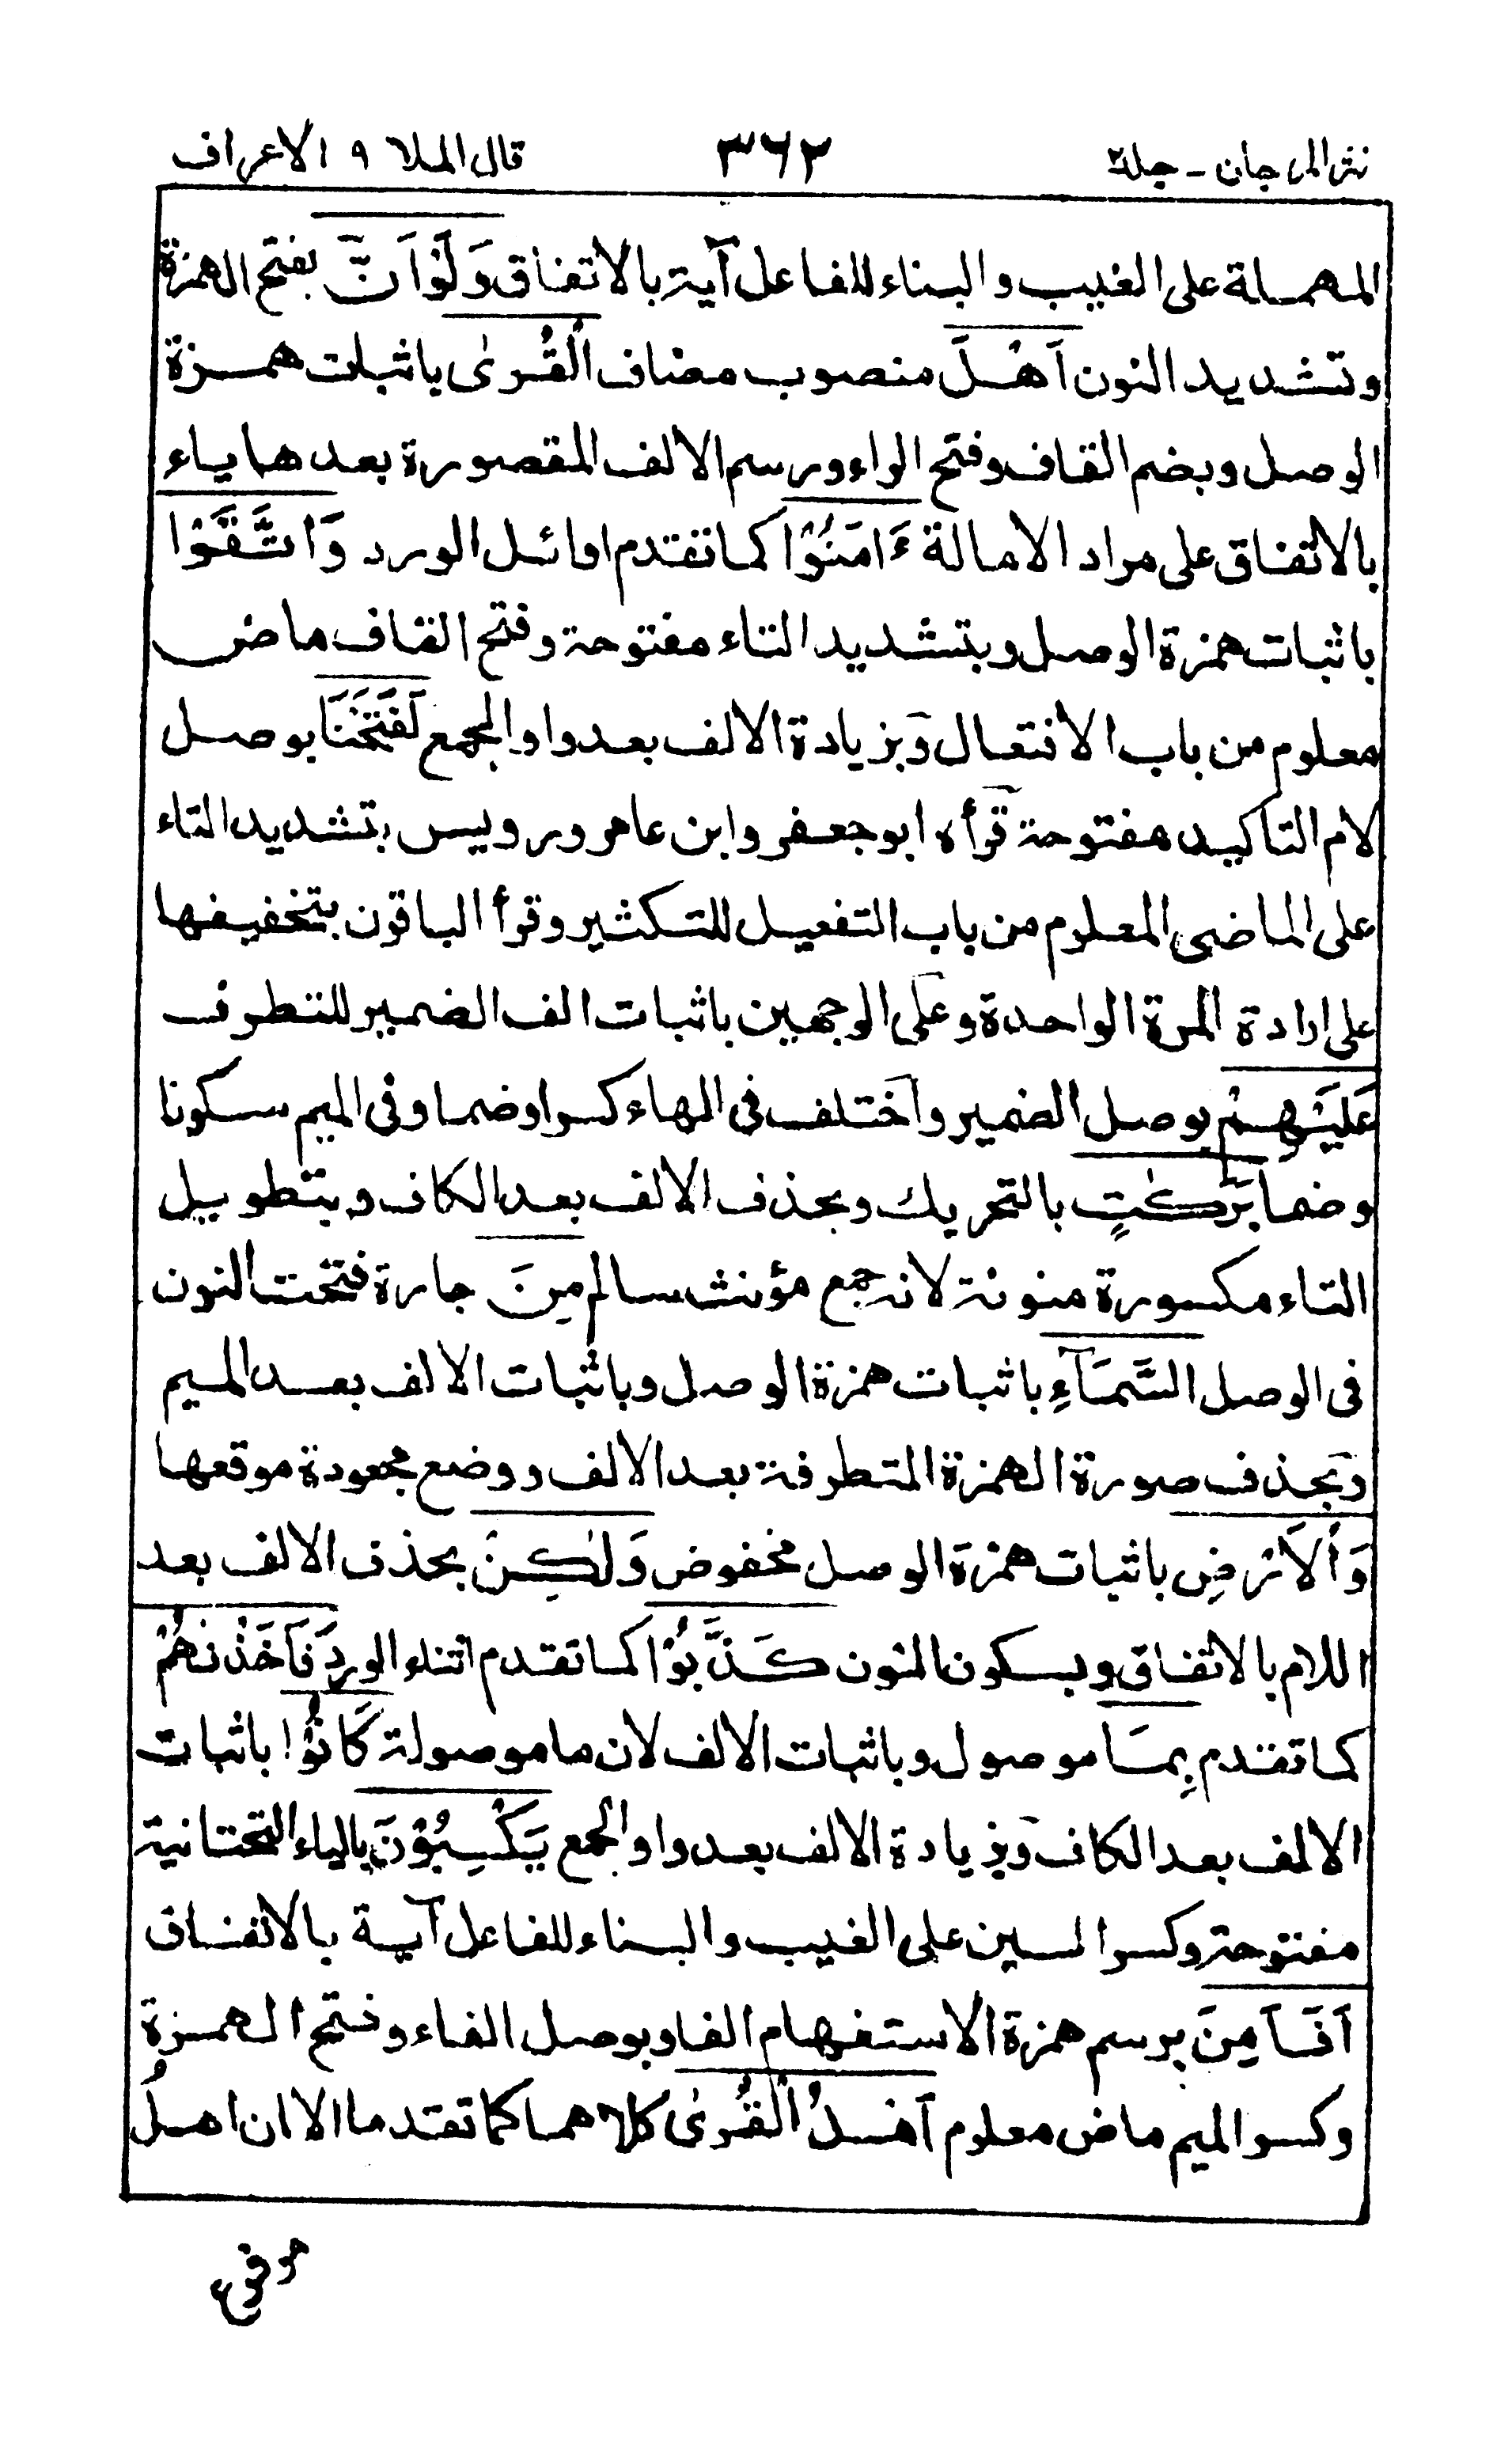 نثر المرجان - جلد٢ ٣٦٢ قال الملا ٩ الاعراف
المهملة على الغيب والبناء للفاعل آية بالاتفاق وَلَوْاَنَّ بفتح الهمزة
وتشديد النون اَهْلَ منصوب مضاف اَلْقُرىٰ باثبات همزة
الوصل وبضم القاف وفتح الراء ورسم الالف المقصورة بعدها ياء
بالاتفاق على مراد الامالة ءَامَنُوْا كما تقدم اوائل الورد وَاتَّقَوْا
باثبات همزة الوصل وبتشديد التاء مفتوحة وفتح القاف ماض
معلوم من باب الافتعال وَبزيادة الالف بعد واو الجمع لَفَتَحْنَا بوصل
لام التاكيد مفتوحة قرأه ابو جعفر وابن عامر ورويس بتشديد التاء
على الماضى المعلوم من باب التفعيل للتكثير وقرأ الباقون بتخفيفها
على ارادة المرة الواحدة وعلى الوجهين باثبات الف الضمير للتطرف
عَلَيْهِمْ بوصل الضمير واختلف فى الهاء كسرا وضما وفى الميم سكونا
وضما بَرَكٰتٍ بالتحريك وبحذف الالف بعد الكاف وبتطويل
التاء مكسورة منونة لانه جمع مؤنث سالم مِنَ جارة فتحت النون
فى الوصل السَّمَآءِ باثبات همزة الوصل وباثبات الالف بعد الميم
وَبحذف صورة الهمزة المتطرفة بعد الالف ووضع مجعودة موقعها
وَاْلاَرْضِ باثبات همزة الوصل مخفوض وَلٰكِنْ بحذف الالف بعد
اللام بالاتفاق وبسكون النون كَذَّبُوْا كما تقدم اثناء الورد فَاَخَذْنٰهُمْ
كما تقدم بِمَا موصول وباثبات الالف لان ما موصولة كَانُوْا باثبات
الالف بعد الكاف وَبزيادة الالف بعد واو الجمع يَكْسِبُوْنَ بالياء التحتانية
مفتوحة وكسر السين على الغيب والبناء للفاعل آية بالاتفاق
اَفَاَمِنَ برسم همزة الاستفهام الفا وبوصل الفاء وفتح الهمزة
وكسر الميم ماض معلوم اَهْلُ اَلْقُرىٰ كلاهما كما تقدما الا ان اهلُ